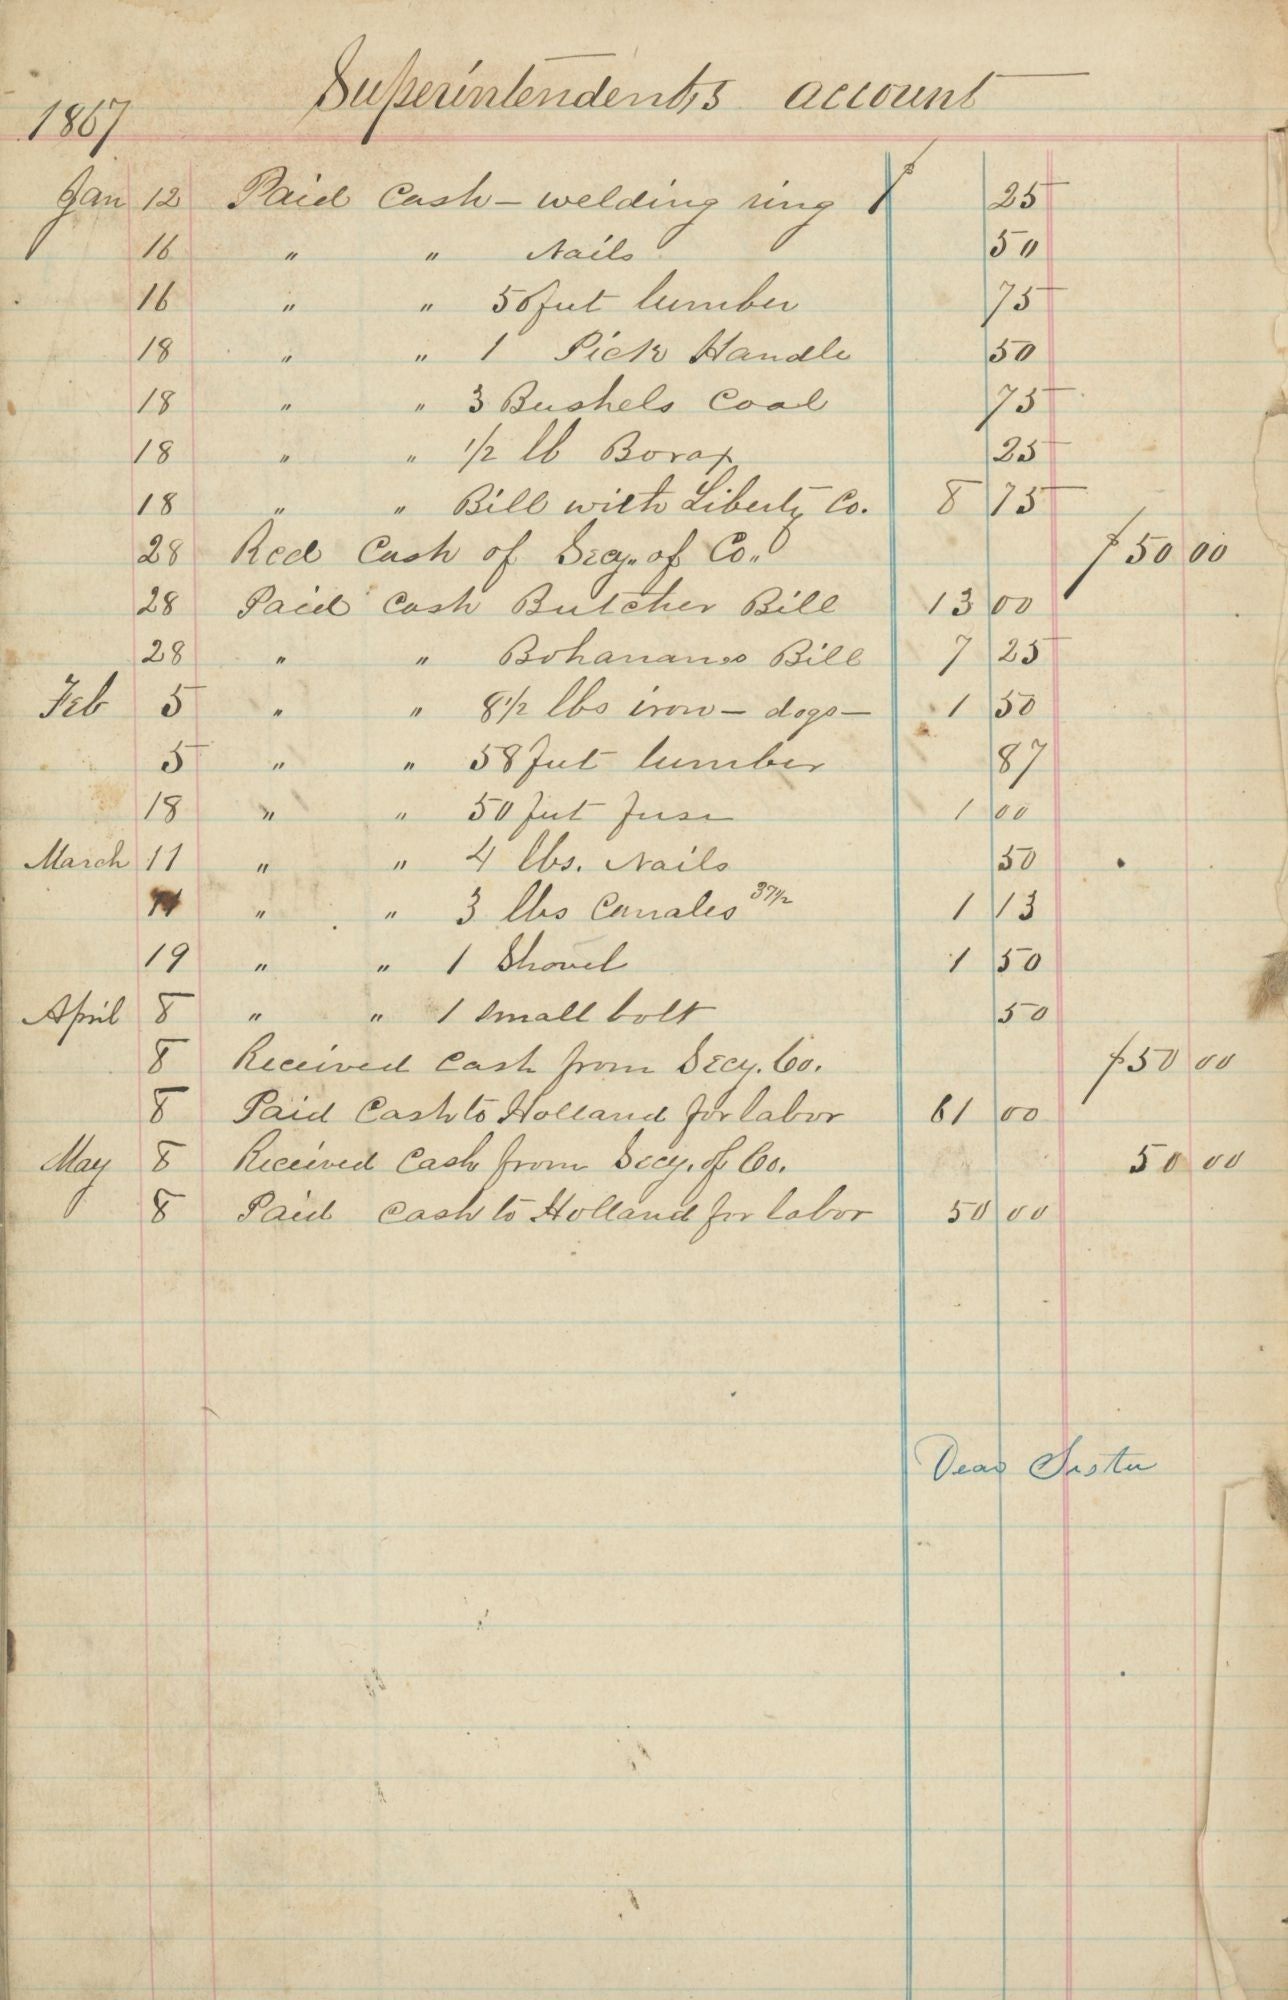 Superintendents account
1867
Jan 12 Paid Cash - welding ring $ 25
16 " " Nails 50
16 " " 50 feet lumber 75
18 " " 1 Pick Handle 50
18 " " 3 Bushels Coal 75
18 " " 1/2 lb Borax 25
18 " " Bill with Liberty Co. 8 75
28 Recd Cash of Secy. of Co. $50 00
28 Paid Cash Butcher Bill 13 00
28 " " Bohanans Bill 7 25
Feb 5 " " 8 1/2 lbs iron - dogs - 1 50
5 " " 58 feet lumber 87
18 " " 50 feet fuse 1 00
March 11 " " 4 lbs. Nails 50
11 " " 3 lbs Candles 37 1/2 1 13
19 " " 1 Shovel 1 50
April 8 " " 1 small bolt 50
8 Received Cash from Secy. Co. $50 00
8 Paid Cash to Holland for labor 61 00
May 8 Received Cash from Secy. of Co. 50 00
8 Paid Cash to Holland for labor 50 00
Dear Sister